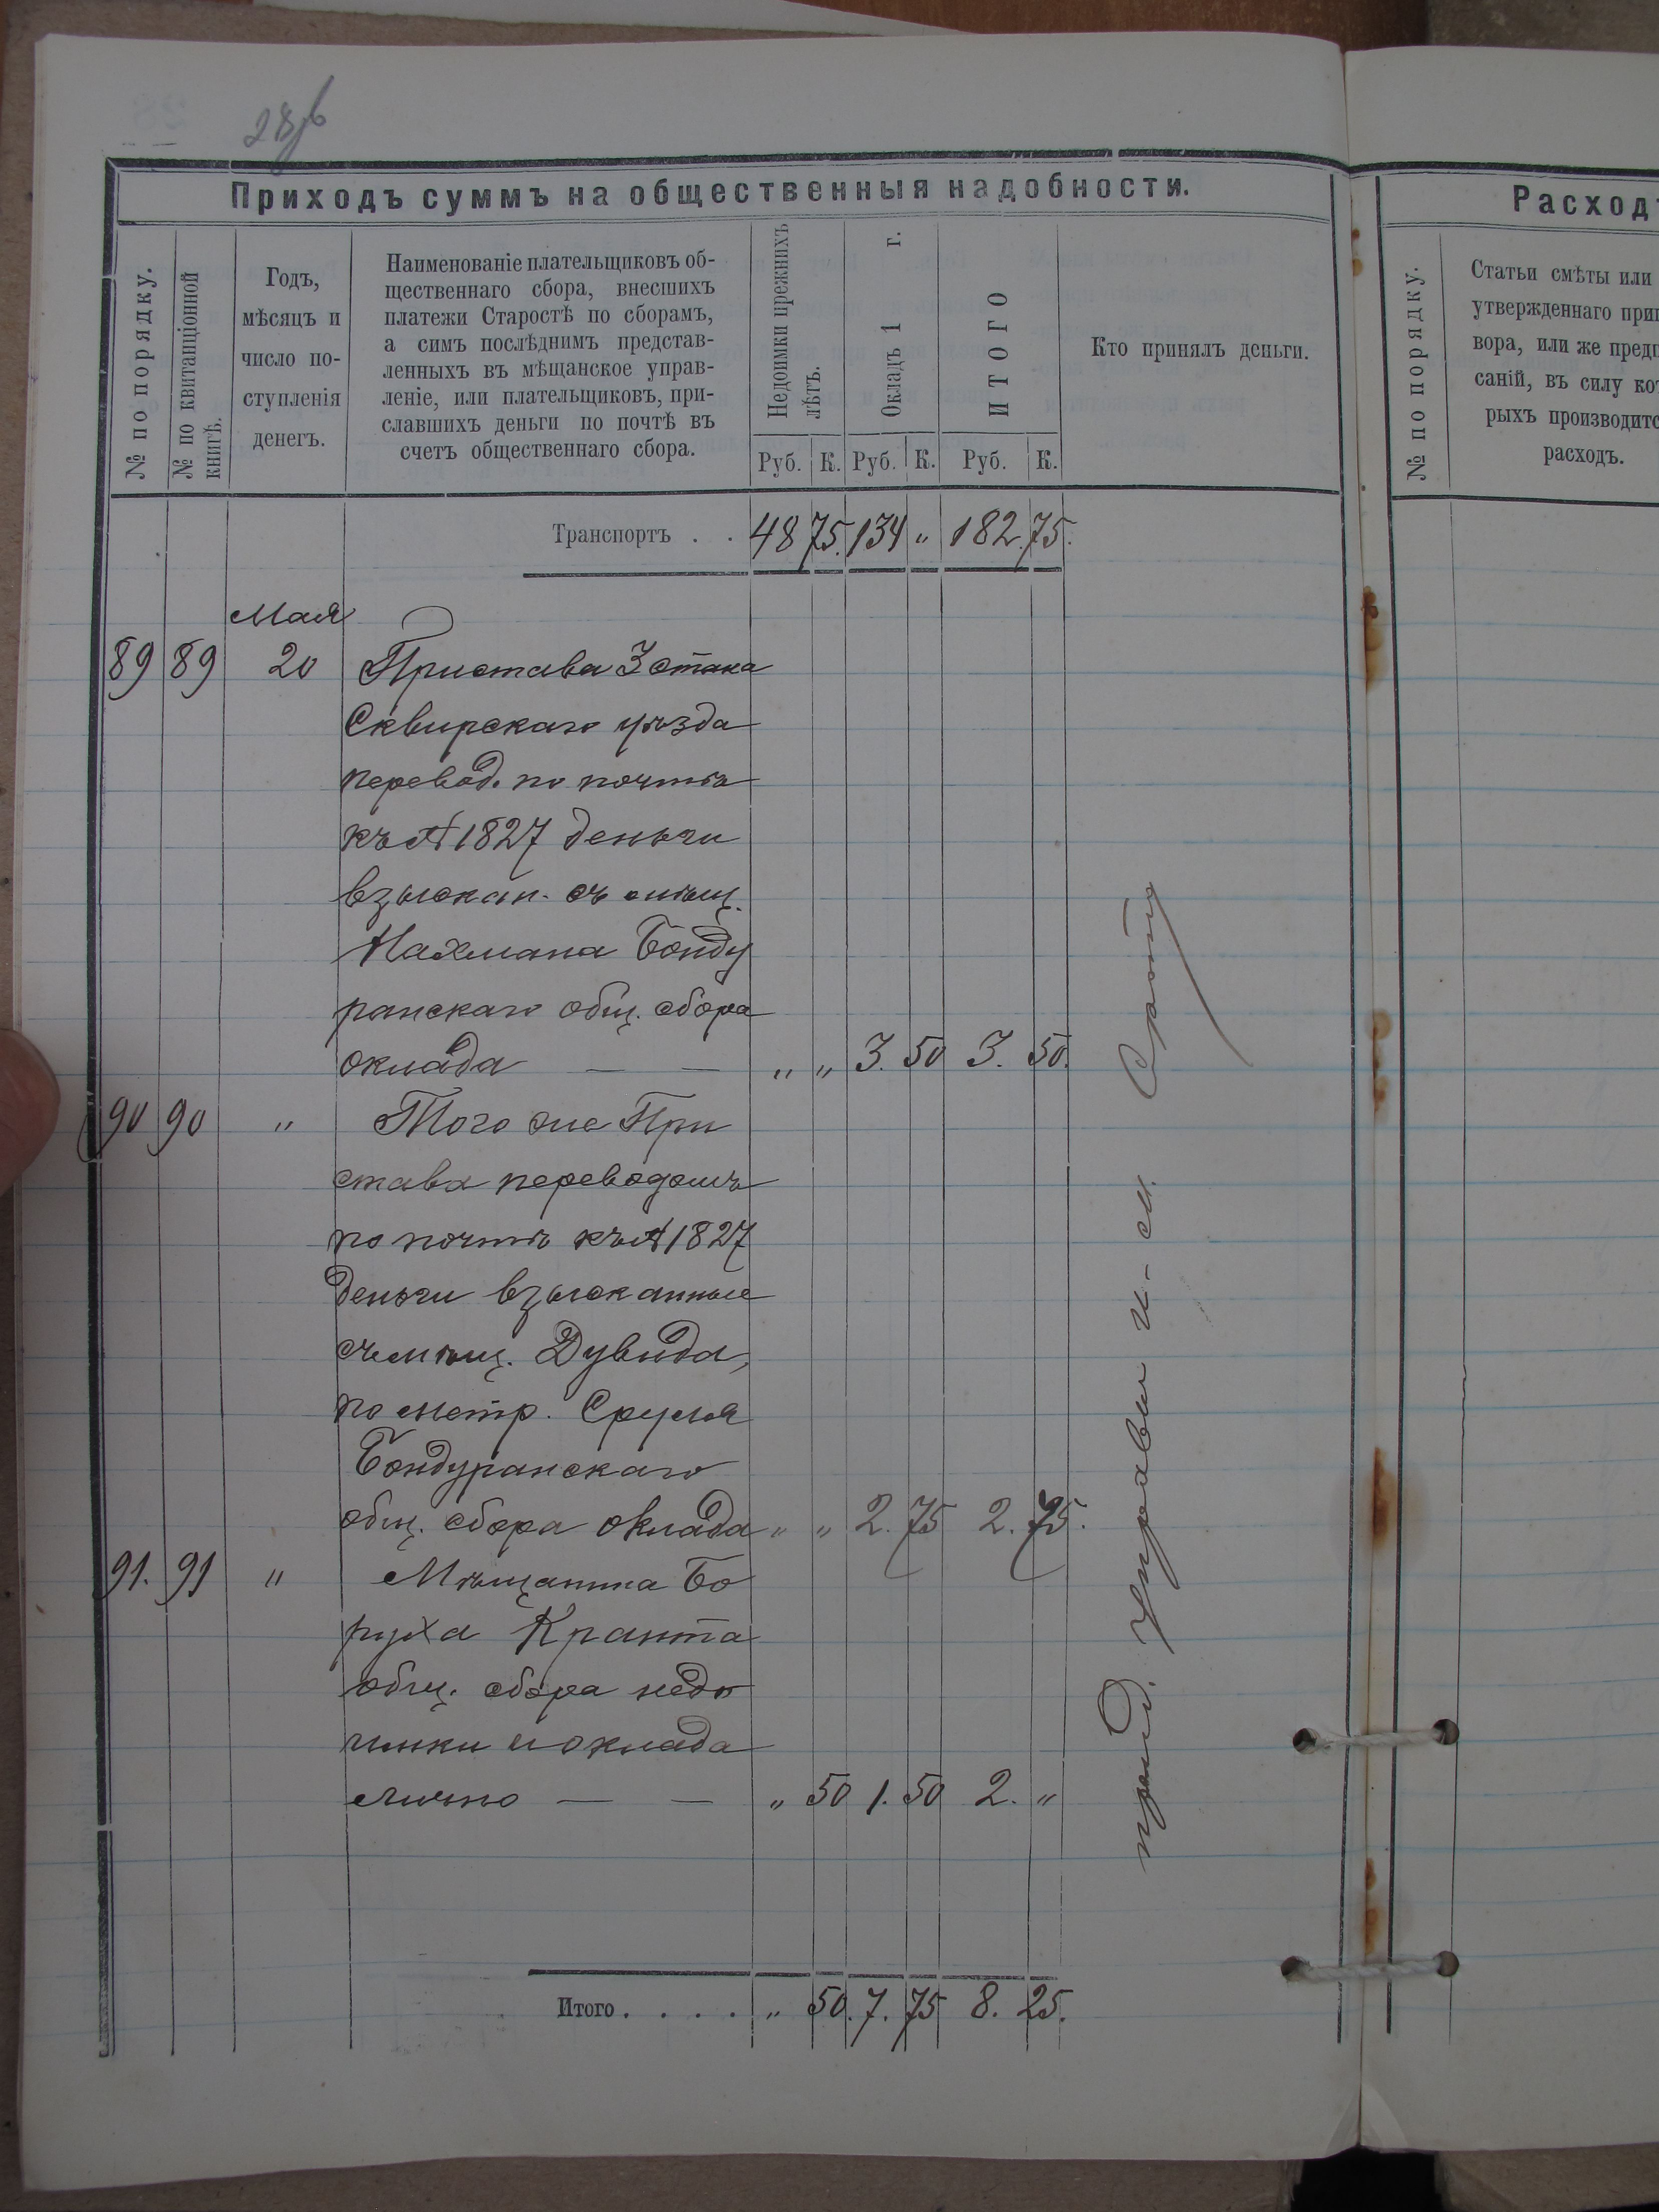 28об
Приходъ суммъ на общественныя надобности.
№ по порядку.
№ по квитанціонной
книгѣ.
Годъ,
мѣсяцъ и
число по-
ступленія
денегъ.
Наименованіе плательщиковъ об-
щественнаго сбора, внесшихъ
платежи Старостѣ по сборамъ,
а симъ послѣднимъ представ-
ленныхъ въ мѣщанское управ-
леніе, или плательщиковъ, при-
славшихъ деньги по почтѣ въ
счетъ общественнаго сбора.
Недоимки прежнихъ
лѣтъ.
Окладъ 1 г.
ИТОГО
Кто принялъ деньги.
Руб. К. Руб. К. Руб. К.
Транспортъ . . 48 75. 134 „ 182. 75.
Мая
89 89 20 Пристава 3 стана
Сквирскаго уѣзда
перевод. по почтѣ
къ № 1827 деньги
взыскан. съ мѣщ.
Нахмана Бонду
ранскаго общ. сбора
оклада — — „ „ 3. 50 3. 50.
90 90 „ Того же При
става переводомъ
по почтѣ къ № 1827
деньги взысканные
съ мѣщ. Дувида,
по метр. Сруля
Бондуранскаго
общ. сбора оклада „ „ 2. 75 2. 75.
91. 91 „ Мѣщанина Бо
руха Кранта
общ. сбора недо
имки и оклада
лично — — „ 50 1. 50 2. „
Итого . . . . „ 50. 7. 75 8. 25.
Управы
Расходъ
№ по порядку.
Статьи смѣты или
утвержденнаго при
вора, или же пред
саній, въ силу ко
рыхъ производитс
расходъ.